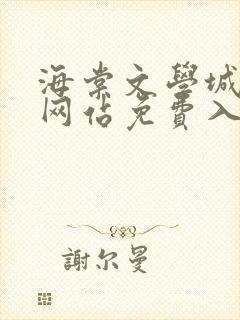 海棠文學城
网站免費入
謝尔曼